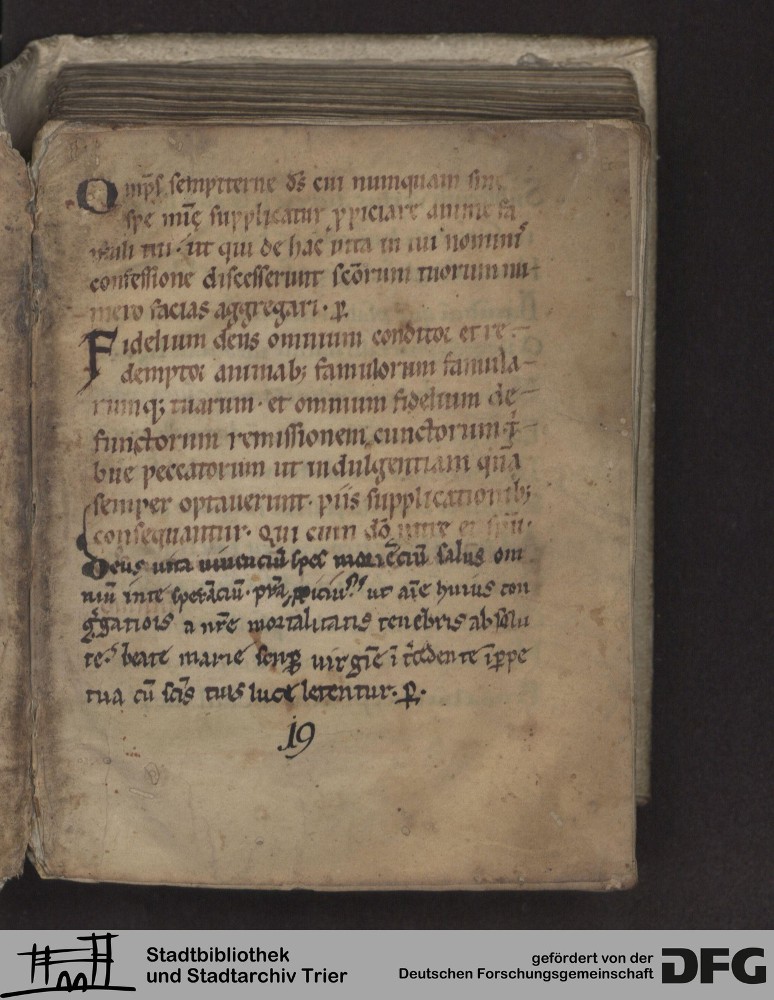 Omp̄s sempiterne ds̄ cui numquam sine
spe mīe supplicatur ꝓpiciare anime fa
muli tui · ut qui de hac uita in tui nominis
confessione discesserunt sc̄orum tuorum nu-
mero facias aggregari · ꝑ.
Fidelium deus omnium conditor et re-
demptor animab; famulorum famula-
rumq; tuarum · et omnium fidelium de-
functorum remissionem cunctorum t͛-
bue peccatorum ut indulgentiam quā
semper optauerunt · piis supplicationib;
consequantur. Qui cum dō patre et spū.
Deus uita uiuenciū spes moriēciū salus om
niū in te sperāciū · ut aīe huius con
g͛gatiōis a nr̄e mortalitatis tenebris absolu
te beate marie semꝑ uirgīe ī t͛cedente ī ꝑpe
tua cū sc̄is tuis luce letentur · ꝑ.
19
Stadtbibliothek
und Stadtarchiv Trier
gefördert von der
Deutschen Forschungsgemeinschaft
DFG